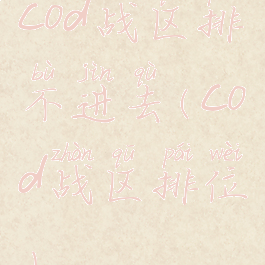 cod战区排
bù jìn qù
不进去(co
zhàn qū pái wèi
d战区排位